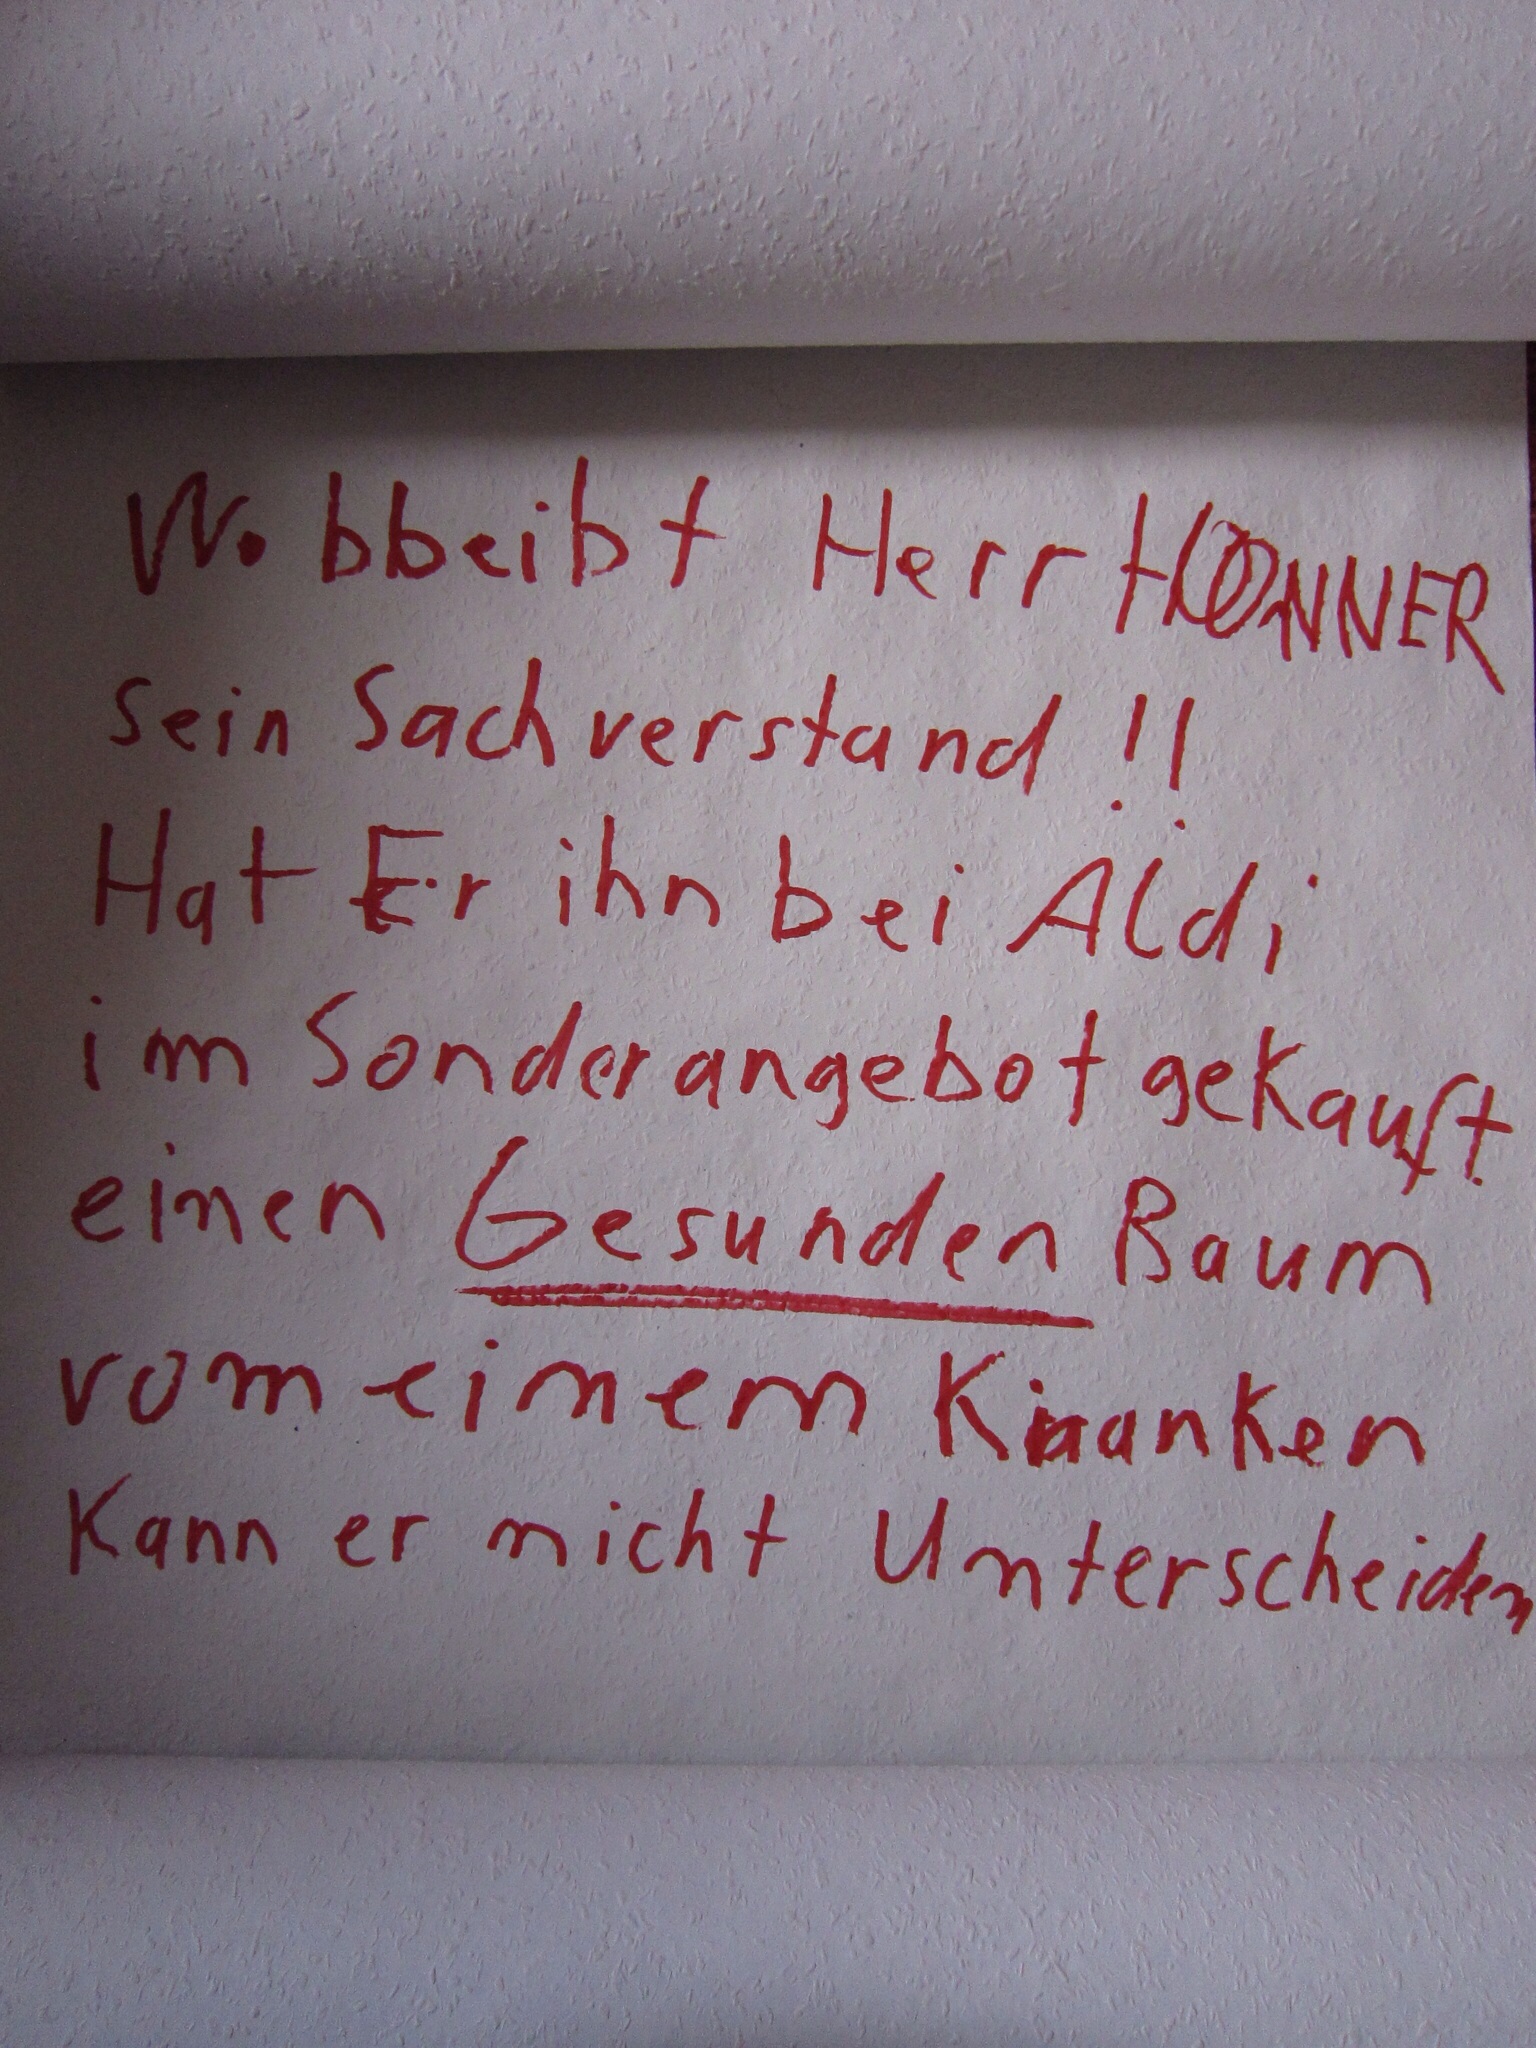 Wo bbeibt Herr HONNER
sein Sachverstand !!
Hat Er ihn bei Aldi
im Sonderangebot gekauft
einen Gesunden Baum
vom einem Kranken
Kann er nicht Unterscheiden